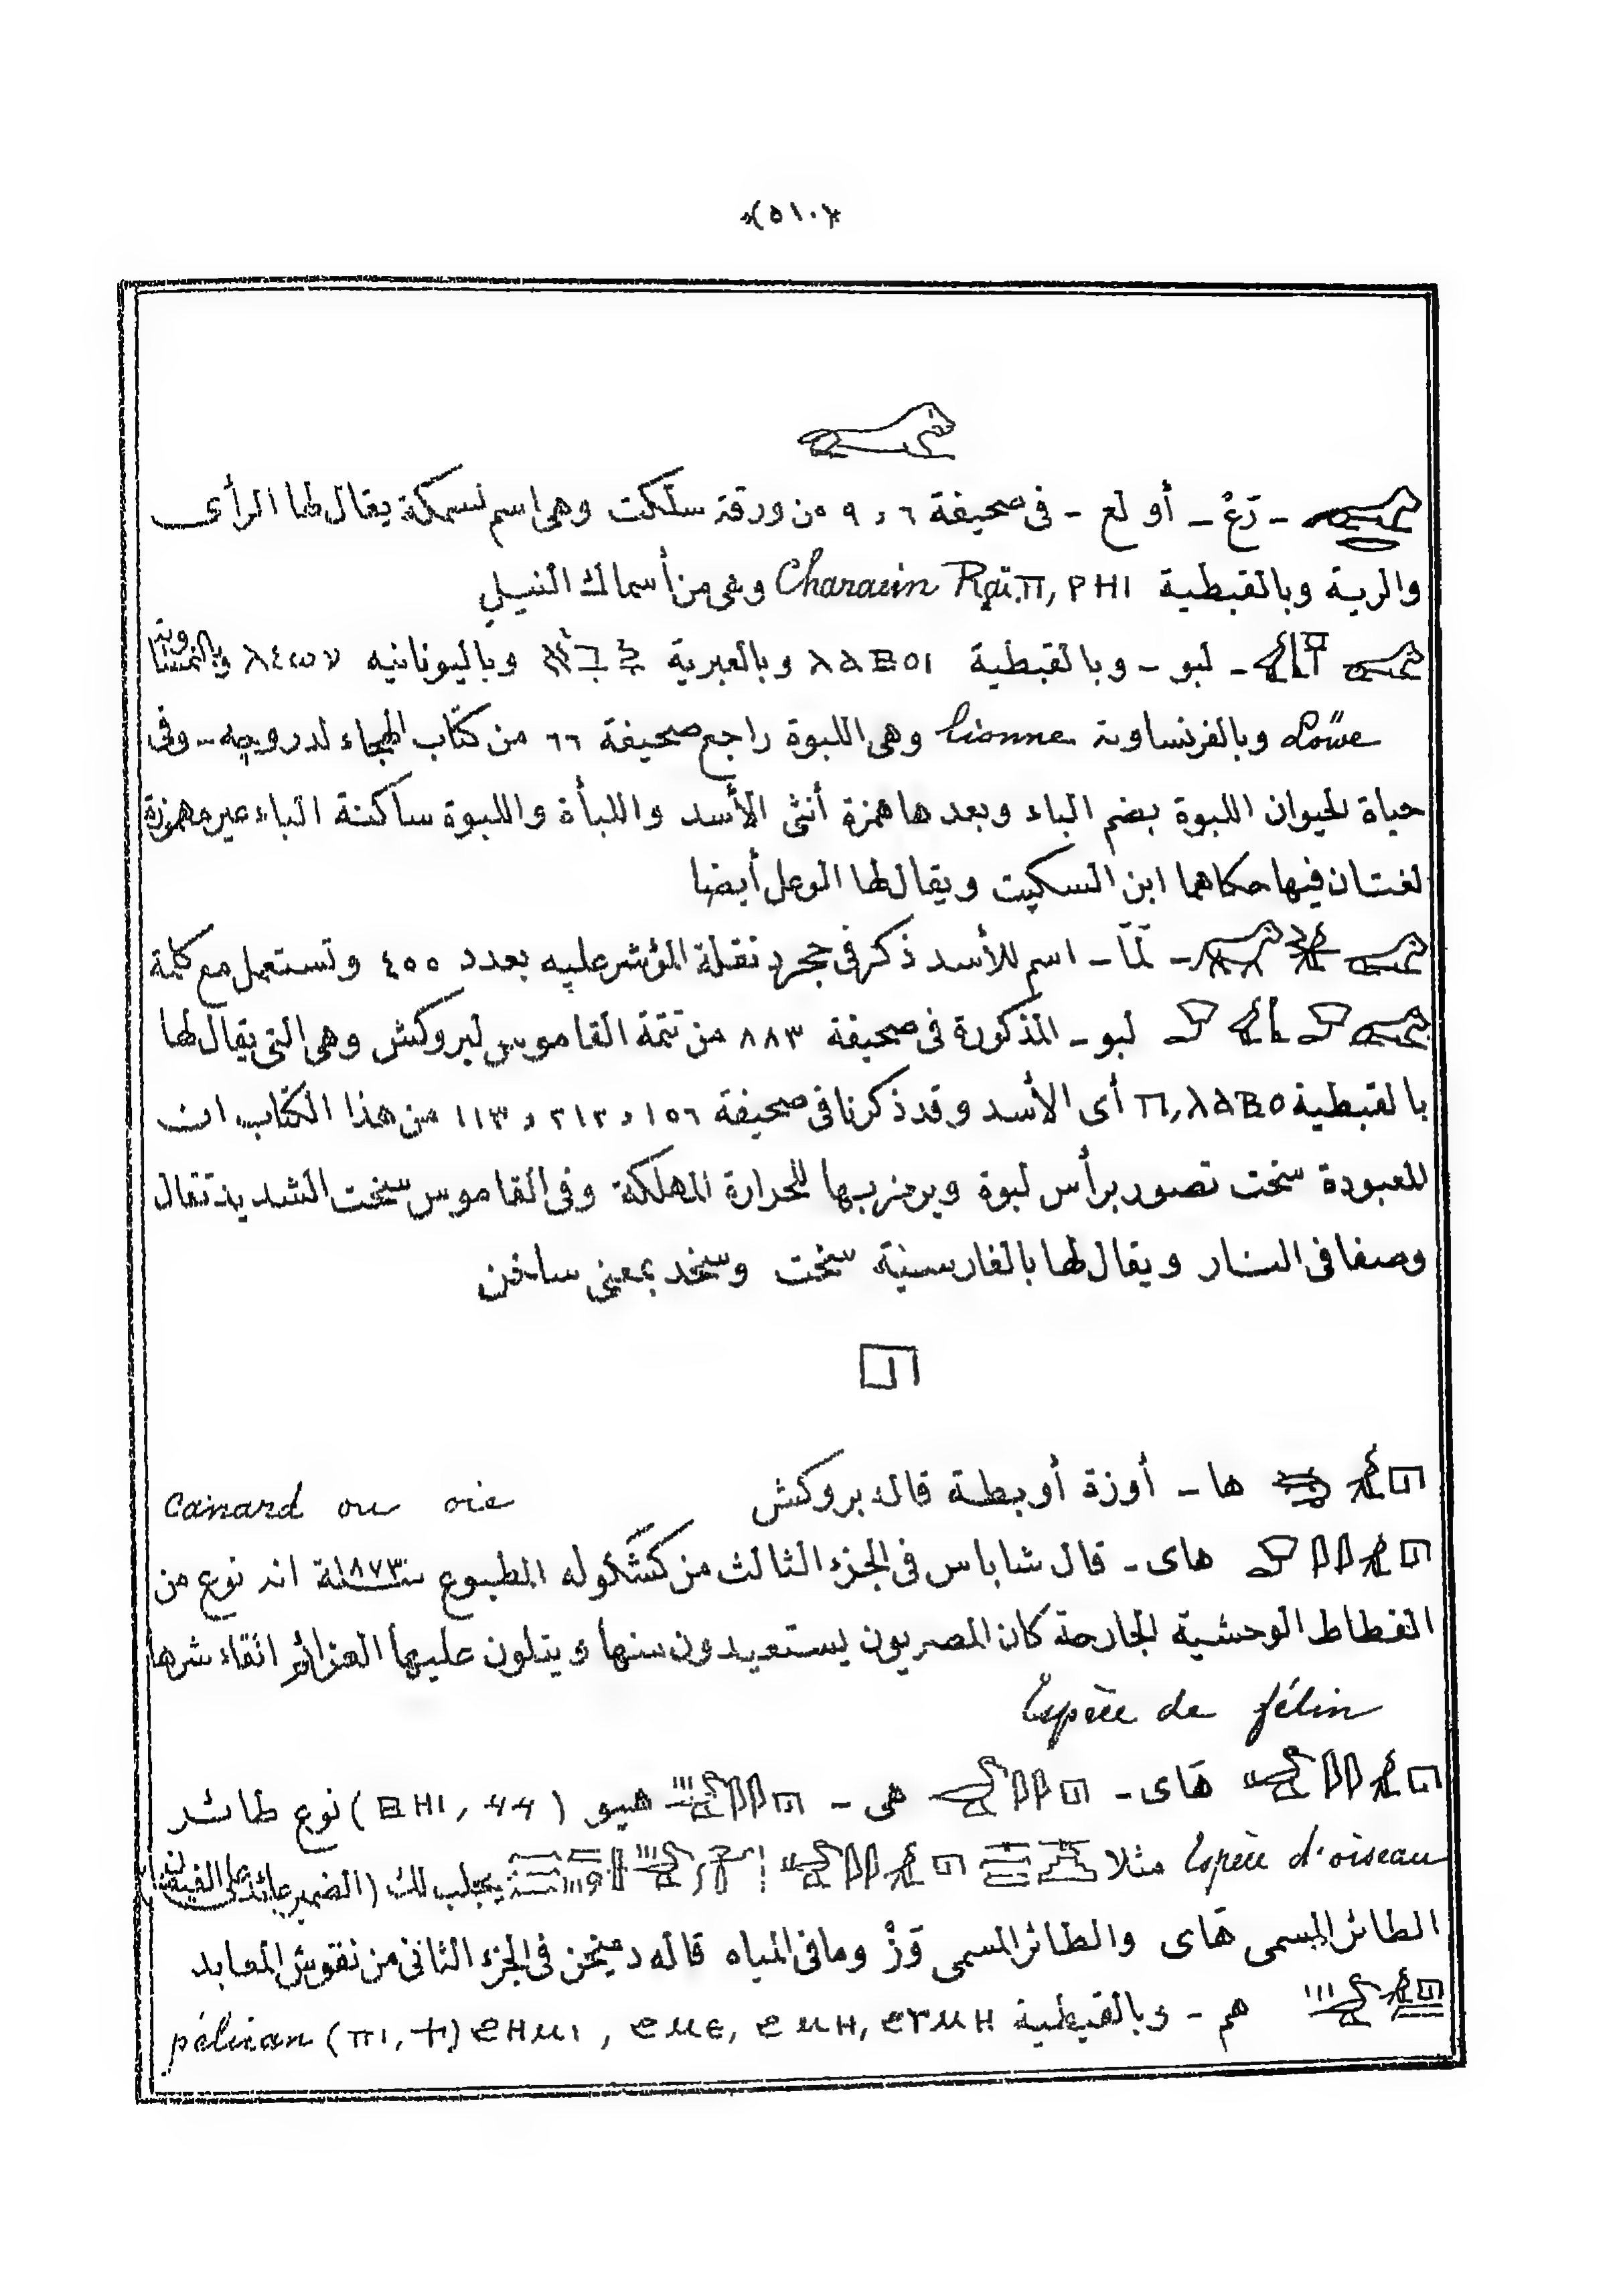 (٥١٠)
- رَعْ - أو لع - فى صحيفة ٦ و ٩ من ورقة سلكت وهى اسم لسمكة يقال لها الرأى
والرية وبالقبطية ⲡ, ⲣⲏⲓ Characin Raï وهى من أسماك النيل
- لبو - وبالقبطية ⲗⲁⲃⲟⲓ وبالعبرية وباليونانيه وبالنمساوية
Löwe وبالفرنساوية lionne وهى اللبوة راجع صحيفة ٦٦ من كتاب الهجاء لدروجه - وفى
حياة الحيوان اللبوة بضم الباء وبعدها همزة أنثى الأسد واللبأة واللبوة ساكنة الباء غير مهموزة
لغتان فيها حكاهما ابن السكيت ويقال لها الوعل أيضا
- لَمّا - اسم للأسد ذكر فى حجر نقلة المؤشر عليه بعدد ٤٥٥ وتستعمل مع كلمة
لبو - المذكورة فى صحيفة ٨٨٣ من تتمة القاموس لبروكش وهى التى يقال لها
بالقبطية ⲡ, ⲗⲁⲃⲟ أى الأسد وقد ذكرنا فى صحيفة ١٥٦ و ٢١٢ و ١١٣ من هذا الكتاب ان
المعبودة سخت تصور برأس لبوة ويرمز بها للحرارة المهلكة وفى القاموس سخت الشديد تقال
وصفا فى النار ويقال لها بالفارسية سخت وسخد بمعنى ساخن
ها - أوزة أو بطة قاله بروكش canard ou oie
هاى - قال شاباس فى الجزء الثالث من كشكوله المطبوع سنة ١٨٧٣ انه نوع من
القطاط الوحشية الجارحة كان المصريون يستعيدون منها ويتلون عليها العزائم اتقاء شرها
Espèce de félin
هَاى - هى - هيو (ⲃⲏⲓ, ϥϥ) نوع طائر
Espèce d'oiseau مثلا يجلب لك (الضمير عائد على
الطائر المسمى هَاى والطائر المسمى وَزْ وما فى المياه قاله دميخن فى الجزء الثانى من نقوش المعابد
هم - وبالقبطية ϩⲩⲙⲏ, ϩⲙⲏ, ϩⲙⲉ, ϩⲏⲙⲓ (ⲡⲓ, ϯ) pélican